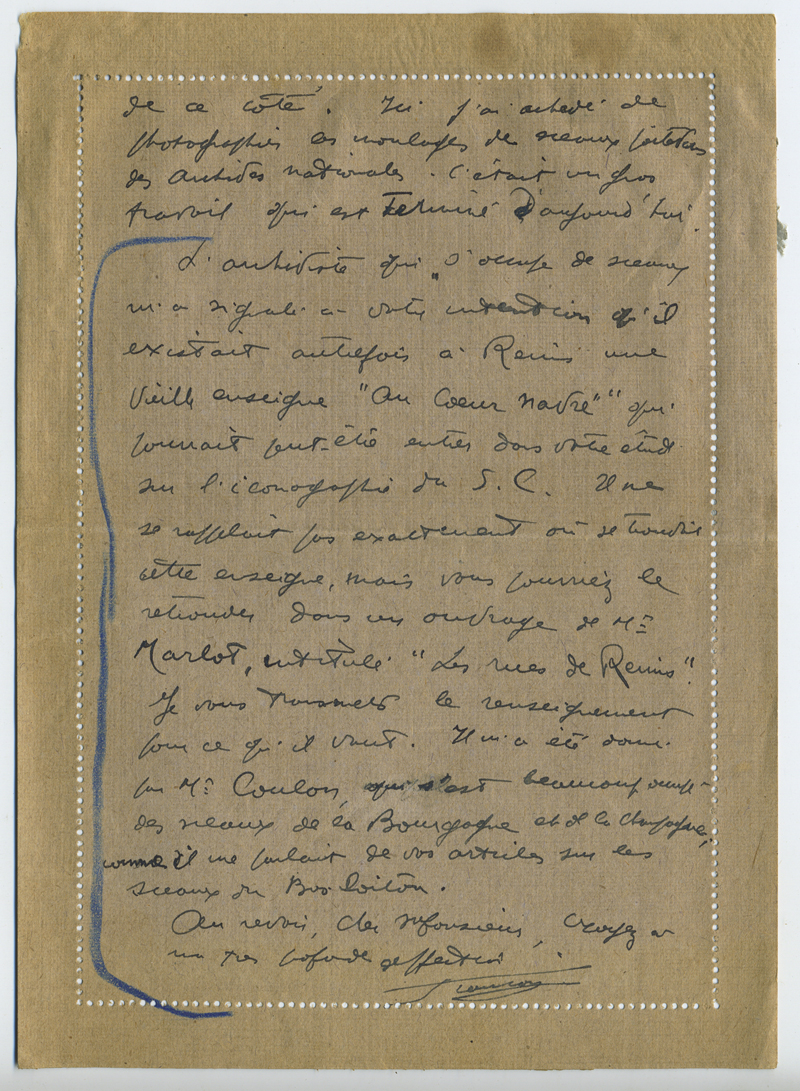 de ce côté. Ici j'ai achevé de
photographier les moulages de sceaux
des Archives nationales. C'était un gros
travail qui est terminé d'aujourd'hui.
L'archiviste qui s'occupe de sceaux
m'a signalé à votre intention qu'il
existait autrefois à Reims une
vieille enseigne "Au Coeur Navré" qui
pourrait peut-être entrer dans votre étude
sur l'iconographie du S. C. Il ne
se rappelait pas exactement où se trouvait
cette enseigne, mais vous pourriez le
retrouver dans un ouvrage de Mr
Marlot, intitulé "Les rues de Reims".
Je vous transmets le renseignement
pour ce qu'il vaut. Il m'a été donné
par Mr Coulon, qui s'est beaucoup occupé
des sceaux de la Bourgogne et de la Champagne,
comme il me parlait de vos articles sur les
sceaux du Bas-Poitou.
Au revoir, cher Monsieur, croyez à
ma très profonde affection.